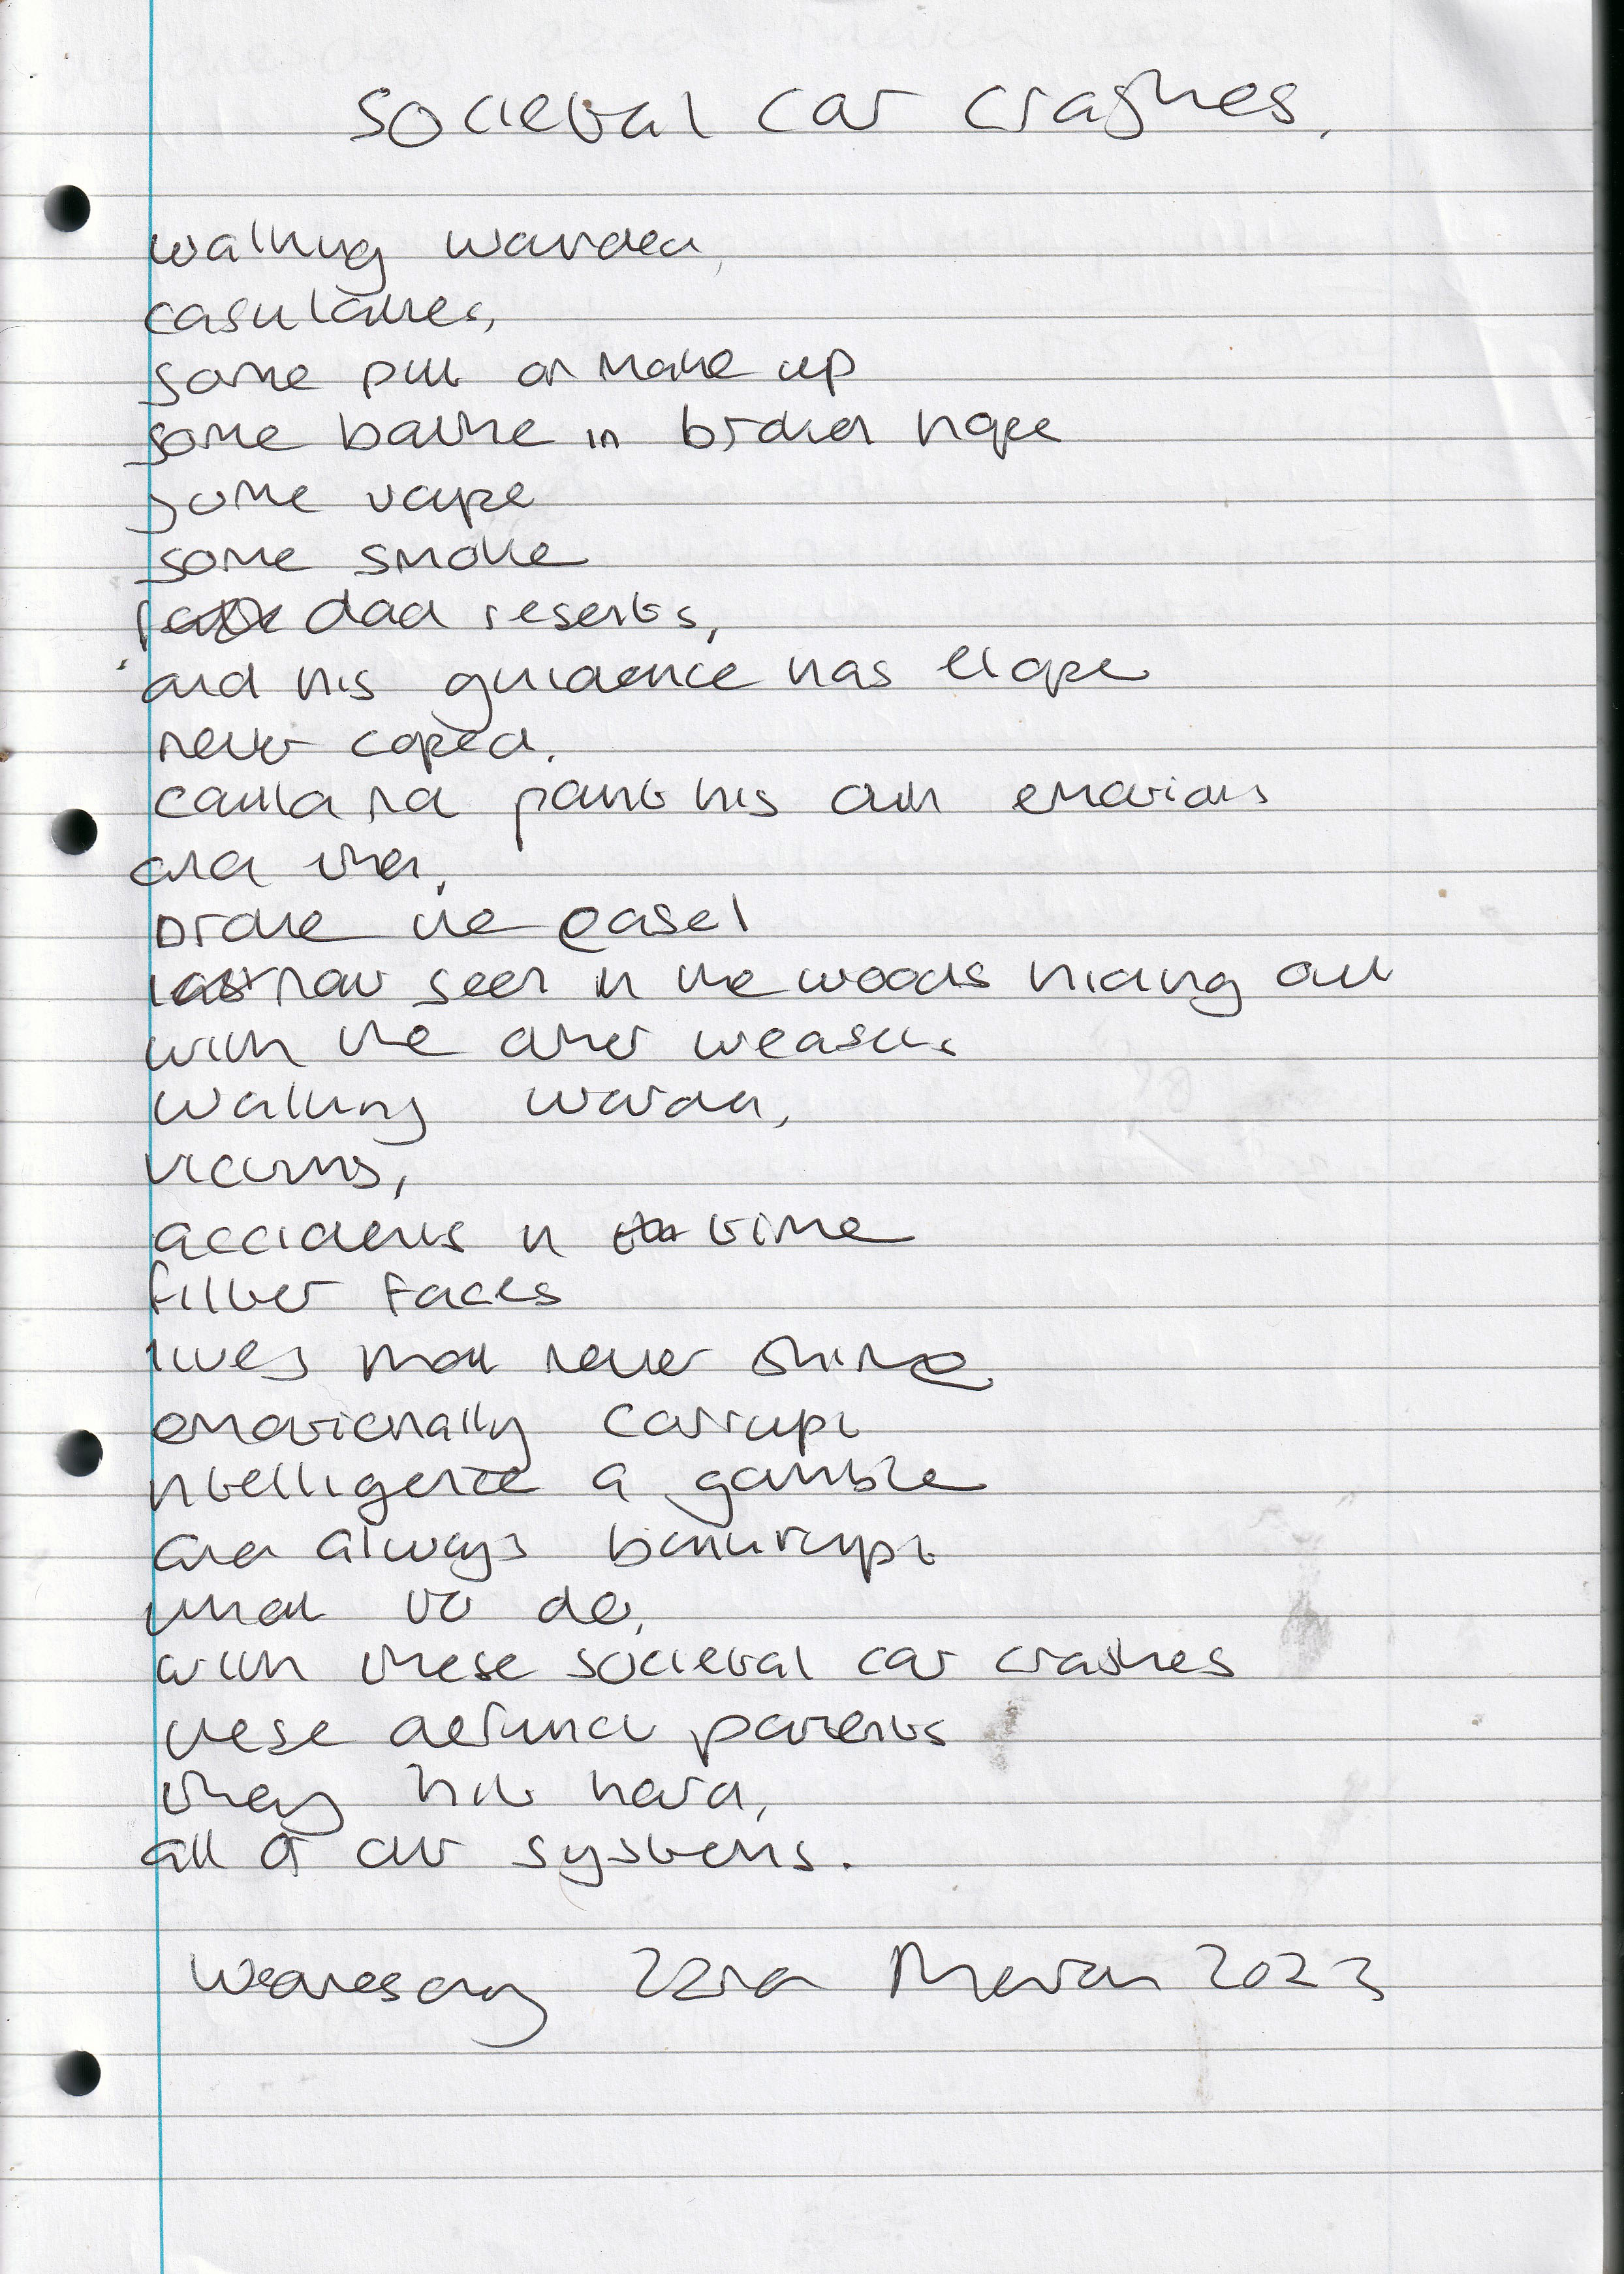 societal car crashes.
walking wounded,
casulaties,
some put on make up
some bathe in broken hope
some vape
some smoke
dad resents,
and his guidence has elope
never coped.
could no paint his own emotions
and then,
broke the easel
now seen in the woods hiding out
with the other weasels
walking wounded,
victims,
accidents in time
filter faces
lives that never shine
emotionally corrupt
intelligence a gamble
and always bankrupt
what to do,
with these societal car crashes
these defunct parents
they hit hard,
all of our systems.
Wednesday 22nd March 2023